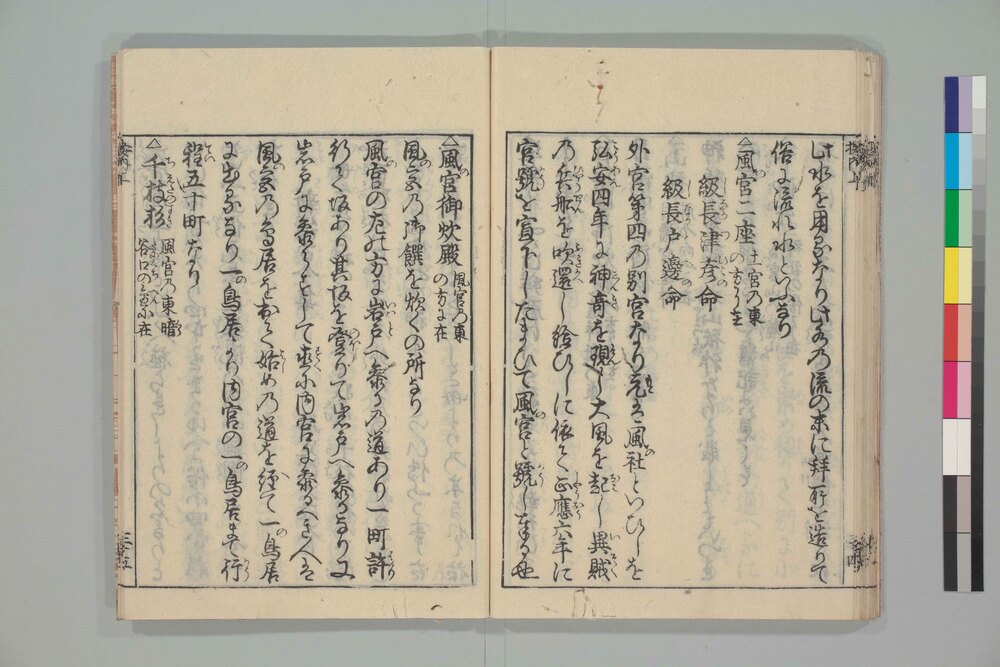 此水を用るなり此水乃流の末に拝所を造りて
俗に流れ水といふなり
△風宮二座 土宮乃東の方に在
級長津彦命
級長戸邊命
外宮第四乃別宮なり元は風社といひしを
弘安四年に神奇を現し大風を起し異賊
乃兵船を吹還し給ひしに依て正應六年に
官號を宣下したまひて風宮と號し奉る也
△風宮御炊殿 風宮乃東の方に在
風宮乃御饌を炊くの所なり
風宮の左の方に岩戸へ參る乃道あり一町許
行て坂あり其坂を登りて岩戸へ參るなり又
岩戸に參らずして直に内宮に參るべき人は
風宮乃鳥居を出て始め乃道を經て一鳥居
に出るなり一鳥居より内宮の一の鳥居まで行
程五十町なり
△千枝杉 風宮乃東 谷口の に在